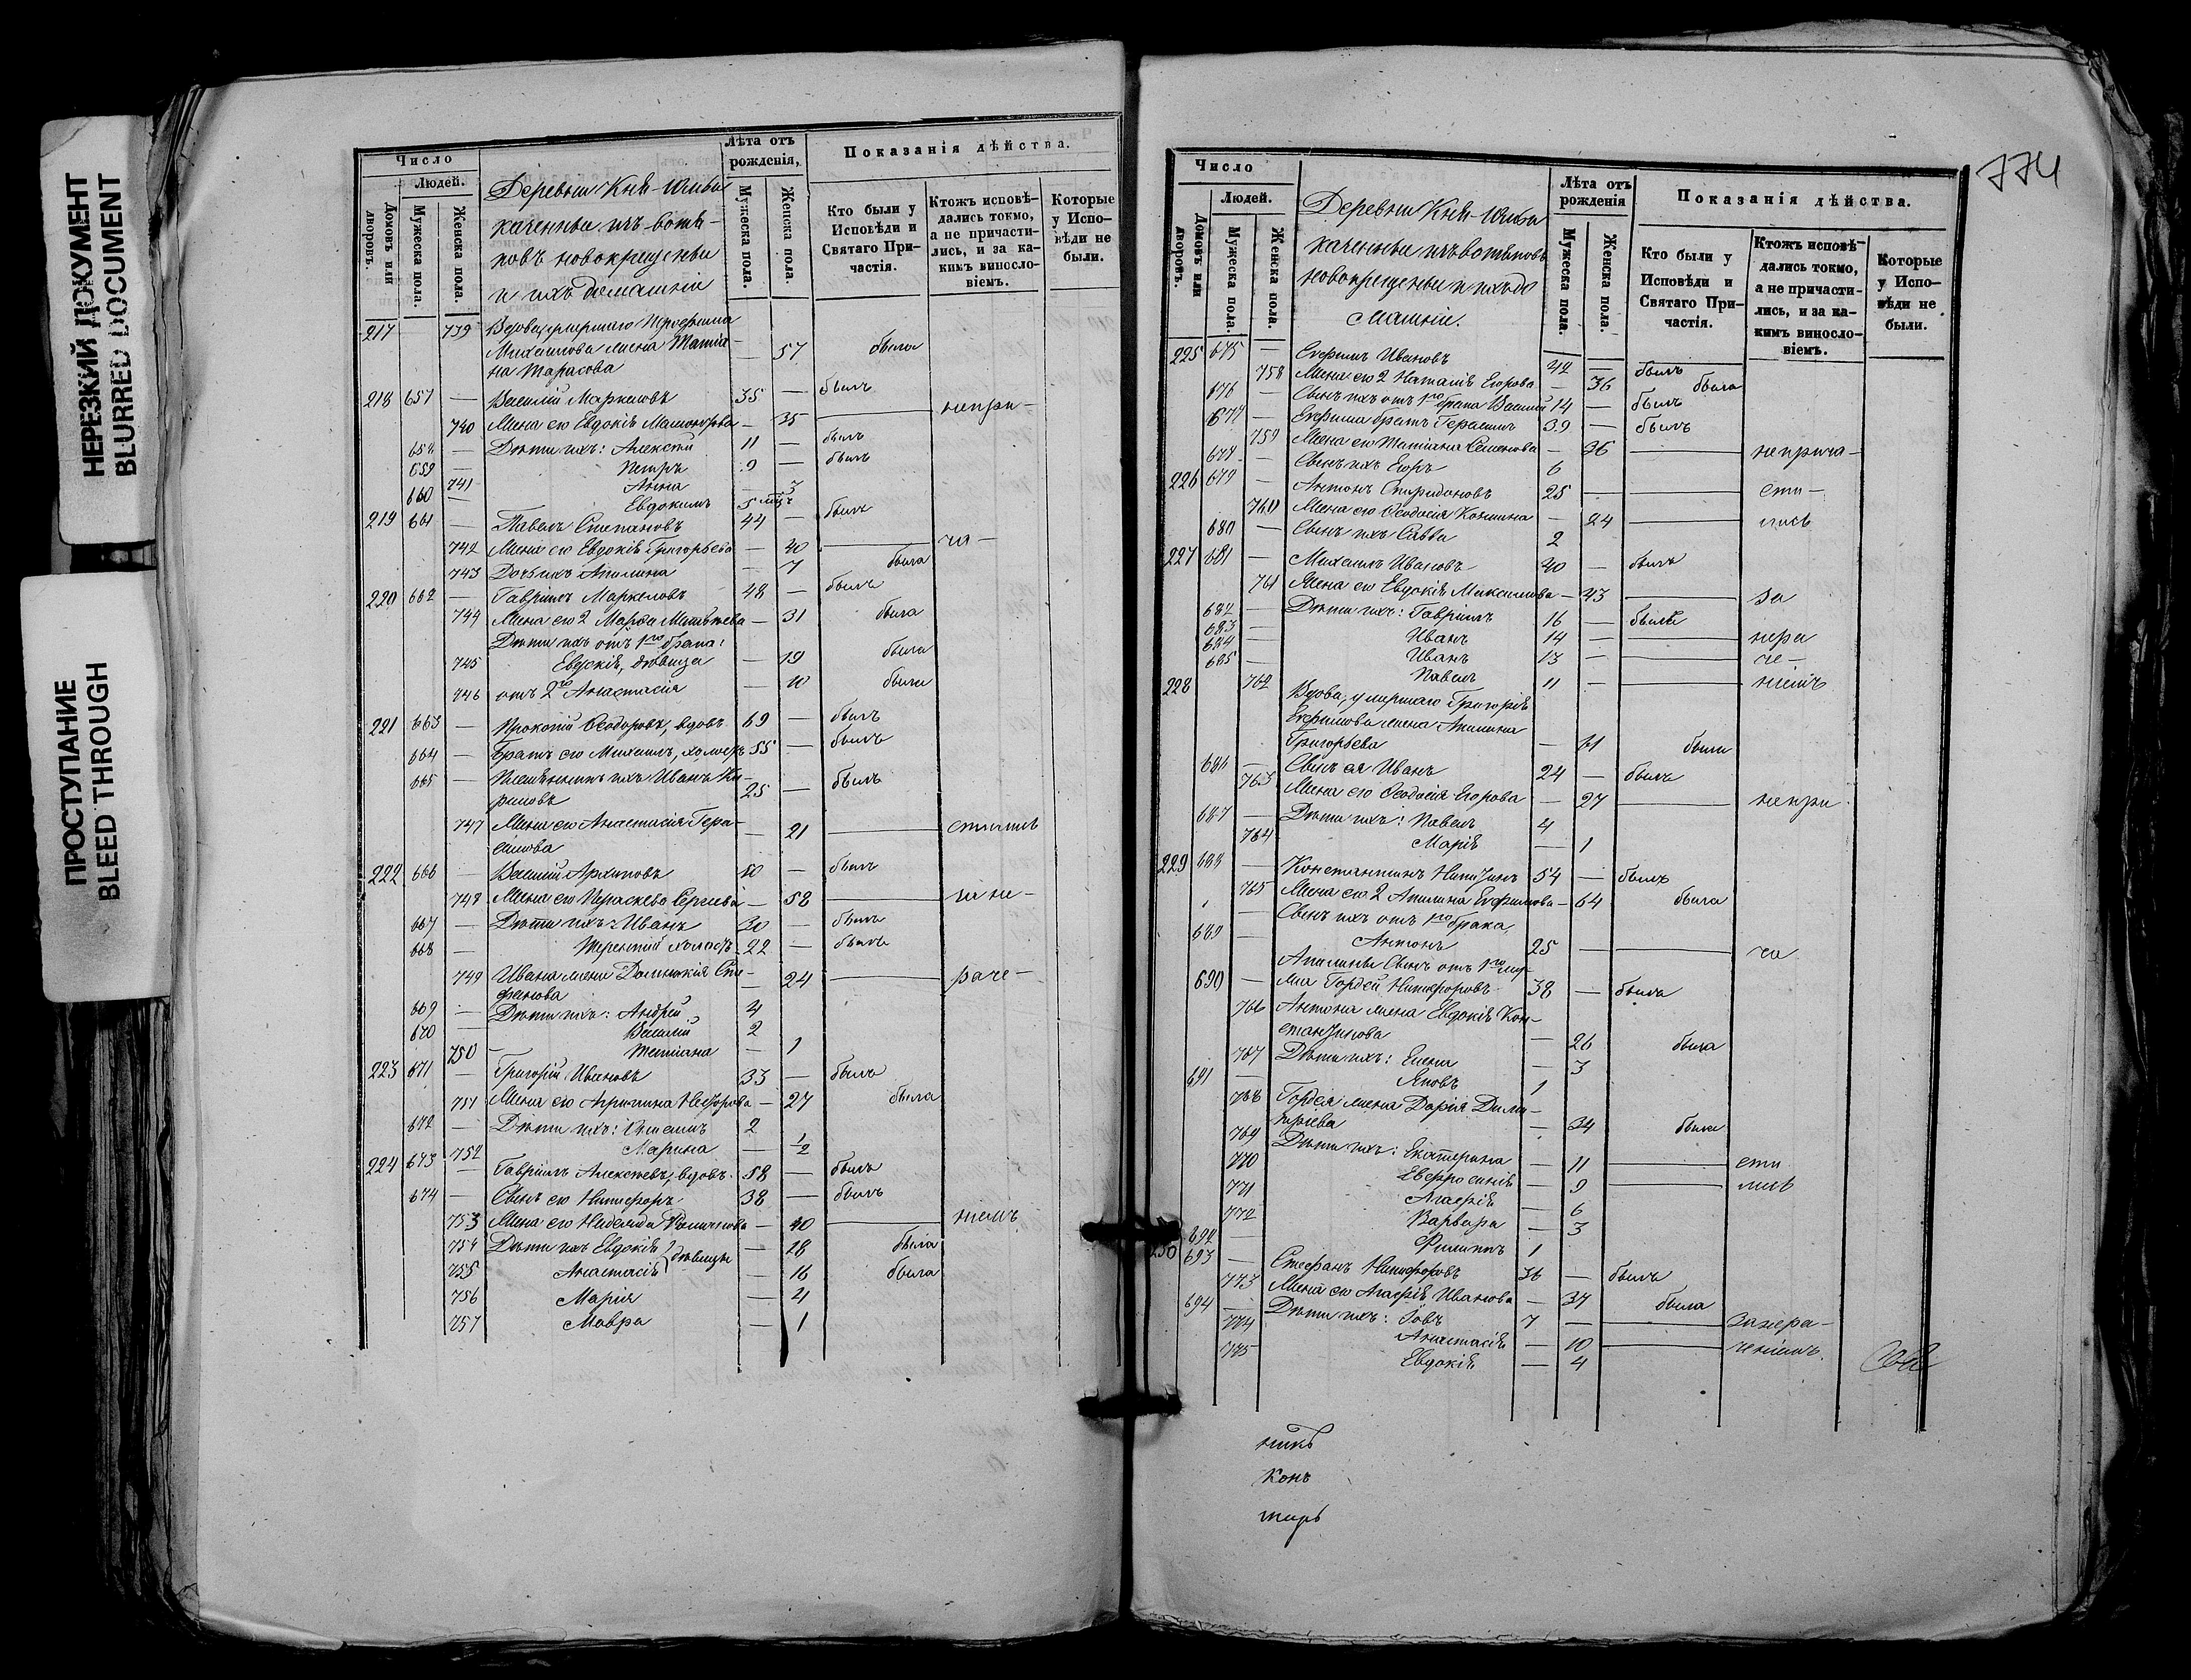 НЕРЕЗКИЙ ДОКУМЕНТ
BLURRED DOCUMENT
ПРОСТУПАНИЕ
BLEED THROUGH
Число
Людей.
Домовъ или дворовъ.
Мужеска пола.
Женска пола.
Деревни
новокрещены
и ихъ домашніи
Лѣта отъ рожденія,
Мужеска пола.
Женска пола.
Показанія дѣйства.
Кто были у Исповѣди и Святаго Причастія.
Ктожъ исповѣдались токмо, а не причастились, и за какимъ винословіемъ.
Которые у Исповѣди не были.
217 739 Вдова, умершаго
Михаилова жена Татіа-
на Тарасова — 57 была
218 657 — Василій Маркеловъ 35 — былъ
740 Жена его Евдокія — 35 — непри-
658 — Дѣти ихъ: Алексѣй 11 — былъ
659 — Петръ 9 — былъ
741 Анна — 3
660 — Евдокимъ 5 мцъ
219 661 — Павелъ Степановъ 44 — былъ
742 Жена его Евдокія Григорьева — 40 — ча-
743 Дочь ихъ Акилина — 7 была
220 662 — Гавріилъ Маркеловъ 48 — былъ
744 Жена его 2 Марѳа Матвѣева — 31 была
Дѣти ихъ отъ 1го брака:
745 Евдокія, дѣвица — 19 была
746 отъ 2го Анастасія — 10 была
221 663 — Прокопій Ѳеодоровъ, вдовъ 69 — былъ
664 — Братъ его Михаилъ, холостъ 55 — былъ
665 — Племянникъ ихъ Иванъ Ки-
риловъ 25 — былъ
747 Жена его Анастасія Гера-
симова — 21 — стилась
222 666 — Василій Архиповъ 50 — былъ
748 Жена его Параскева Сергіева — 58 — за не-
667 — Дѣти ихъ: Иванъ 30 — былъ
668 — Терентій холостъ 22 — былъ
749 Ивана жена Домникія Сте-
фанова — 24 — раче-
669 — Дѣти ихъ: Андрей 4
670 — Василій 2
750 — Татіана — 1
223 671 — Григорій Ивановъ 33 — былъ
751 Жена его Агрипина Нефодова — 27 была
672 — Дѣти ихъ: 2
752 Марина — 1/2
224 673 — Гавріилъ Алексѣевъ, вдовъ 58 — былъ
674 — Сынъ его Никифоръ 38 — былъ
753 Жена его Надежда — 40 — ніемъ
754 Дѣти ихъ Евдокія } дѣвицы — 18 была
755 Анастасія — 16 была
756 Марія — 4
757 Мавра — 1
774
Число
Людей.
Домовъ или дворовъ.
Мужеска пола.
Женска пола.
Деревни
новокрещены и ихъ до
машніи.
Лѣта отъ рожденія
Мужеска пола.
Женска пола.
Показанія дѣйства.
Кто были у Исповѣди и Святаго Причастія.
Ктожъ исповѣдались токмо, а не причастились, и за какимъ винословіемъ.
Которые у Исповѣди не были.
225 675 — Ефимъ Ивановъ 42 — былъ
758 Жена его 2 Наталія Егорова — 36 была
676 — Сынъ ихъ отъ 1го брака Василій 14 — былъ
677 — Ефима братъ Герасимъ 39 — былъ
759 Жена его Татіана Семенова — 36 — неприча-
678 — Сынъ ихъ Егоръ 6
226 679 — Антонъ Спиридоновъ 25 — сти-
760 Жена его Ѳеодосія — 24 — лись
680 — Сынъ ихъ Савва 2
227 681 — Михаилъ Ивановъ 40 — былъ
761 Жена его Евдокія Максимова — 43 — за
682 — Дѣти ихъ: Гавріилъ 16 — былъ
683 — Иванъ 14 — нера
684 — Иванъ 13 — че-
685 — Павелъ 11 — ніемъ
228 762 Вдова, умершаго Григорія
Ефимова жена Акилина
Григорьева — 61 была
686 — Сынъ ея Иванъ 24 — былъ
763 Жена его Ѳеодосія Егорова — 27 — непри
687 — Дѣти ихъ: Павелъ 4
764 Марія — 1
229 688 — Константинъ 54 — былъ
765 Жена его 2 Акилина Ефимова — 64 была
Сынъ ихъ отъ 1го брака
689 — Антонъ 25 — ча
Акилины Сынъ отъ 1го му-
690 — жа Гордей Никифоровъ 38 — былъ
766 Антона жена Евдокія Кон-
стантинова — 26 была
767 Дѣти ихъ: Елена — 3
691 — Яковъ 1
768 Гордея жена Дарія Дими-
тріева — 34 была
769 Дѣти ихъ: Екатерина — 11 — сти
770 Евфросинія — 9 — лись
771 Агафія — 6
772 Варвара — 3
692 — Филиппъ 1
230 693 — Стефанъ Никифоровъ 36 — былъ
773 Жена его Агафія Иванова — 37 была
694 — Дѣти ихъ: Іовъ 7 — занера-
774 Анастасія — 10 — ченіемъ.
775 Евдокія — 4
никъ
Конъ
тарь